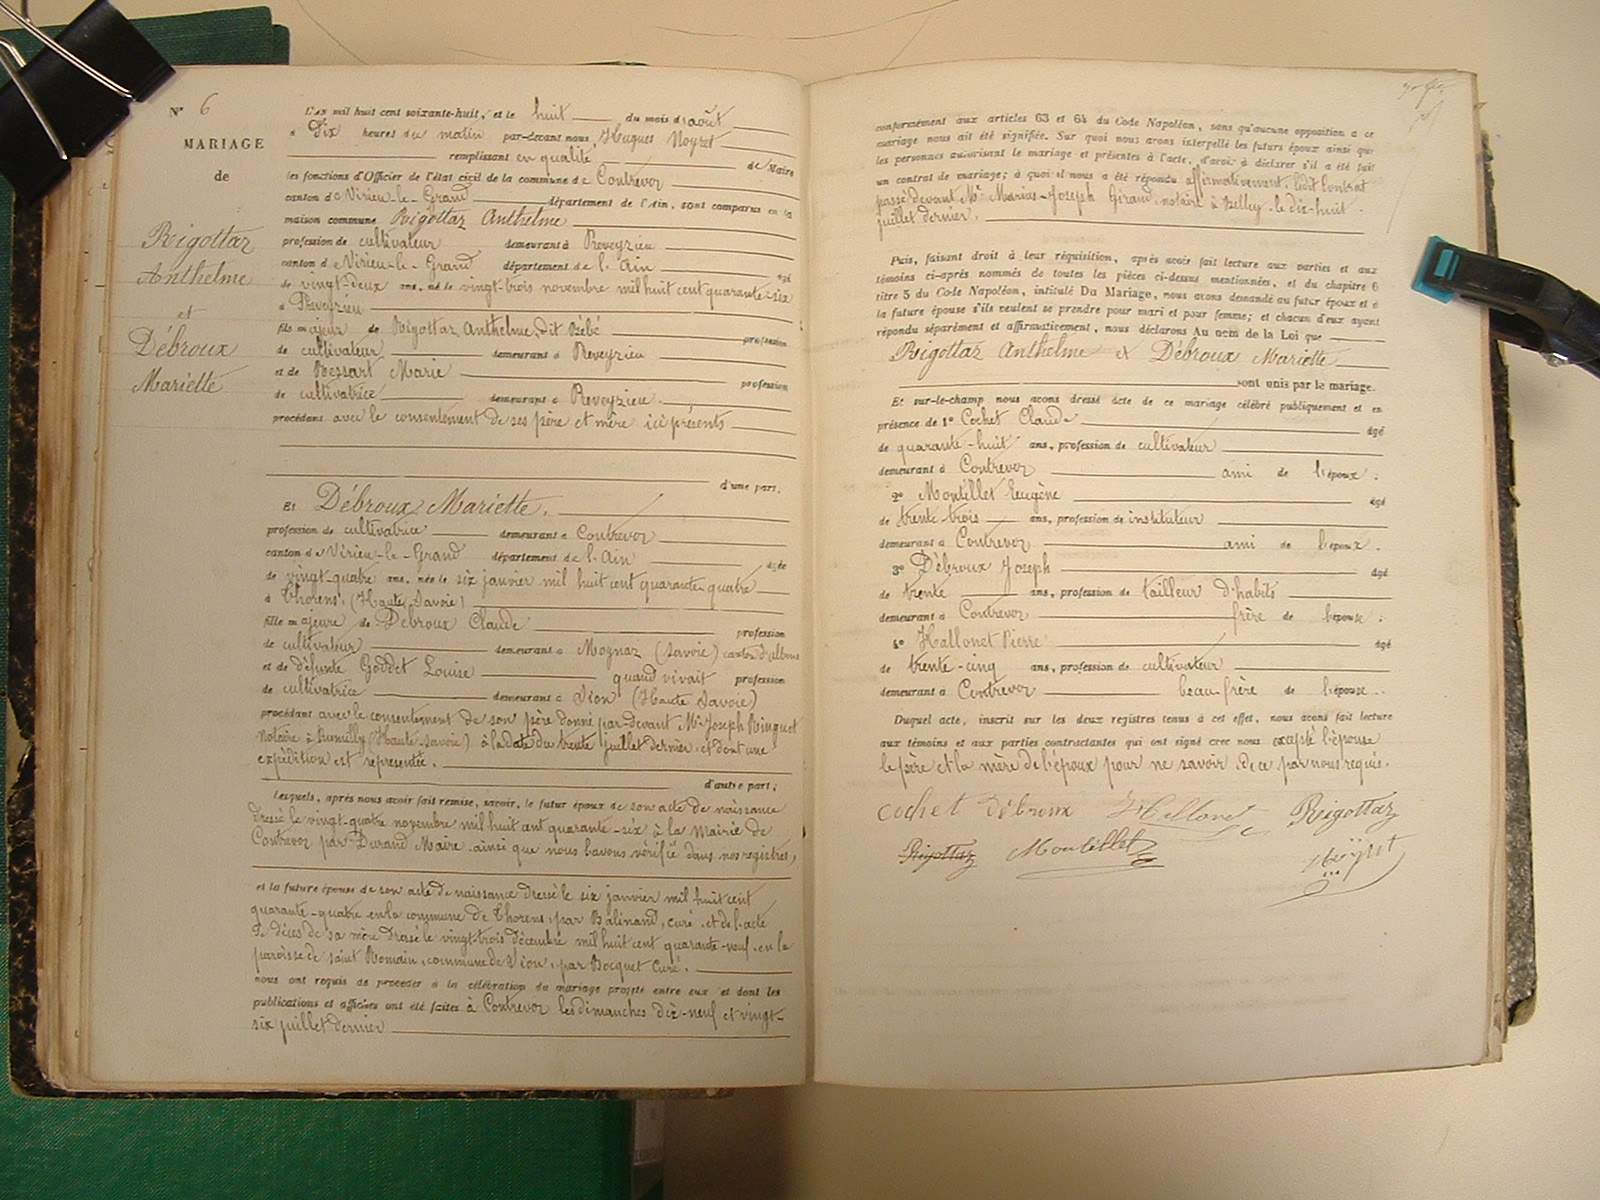 N° 6
MARIAGE
de
Rigottaz
Anthelme
et
Débroux
Mariette
L'an mil huit cent soixante-huit, et le huit du mois d'août
à Dix heures du matin par-devant nous, Hugues Noyret
remplissant en qualité de Maire
les fonctions d'Officier de l'état civil de la commune de Contrevoz
canton de Virieu-le-Grand département de l'Ain, sont comparus en la
maison commune Rigottaz Anthelme
profession de cultivateur demeurant à Reveyzieu
canton d Virieu-le-Grand département de l'Ain âgé
de vingt-deux ans, né le vingt-trois novembre mil huit cent quarante-six
à Preveyzieu
fils majeur de Rigottaz Anthelme, dit Bébé profession
de cultivateur demeurant à Reveyzieu
et de Bessart Marie profession
de cultivatrice demeurant à Reveyzieu.
procédant avec le consentement de ses père et mère ici présents
d'une part.
Et Débroux Mariette.
profession de cultivatrice demeurant à Contrevoz
canton de Virieu-le-Grand département de l'Ain âgée
de vingt-quatre ans, née le six janvier mil huit cent quarante quatre
à Thorens, (Haute Savoie)
fille majeure de Débroux Claude profession
de cultivateur demeurant à Mognaz (Savoie) canton d'albens
et de défunte Goddet Louise quand vivait profession
de cultivatrice demeurant à Sion (Haute Savoie)
procédant avec le consentement de son père donné par-devant Me Joseph Ringuet
notaire à Rumilly (Haute-Savoie) à la date du trente juillet dernier et dont une
expédition est représentée.
d'autre part;
Lesquels, après nous avoir fait remise, savoir, le futur époux de son acte de naissance
Dressé le vingt-quatre novembre mil huit cent quarante-six à la Mairie de
Contrevoz par Durand Maire ainsi que nous l'avons vérifié dans nos registres,
et la future épouse de son acte de naissance dressé le six janvier mil huit cent
quarante-quatre en la commune de Thorens, par Balinand, curé, et de l'acte
De décès de sa mère dressé le vingt-trois décembre mil huit cent quarante-neuf en la
paroisse de saint Romain, commune de Sion, par Bocquet curé.
nous ont requis de procéder à la célébration du mariage projeté entre eux et dont les
publications et affiches ont été faites à Contrevoz les dimanches dix-neuf et vingt-
six juillet dernier
conformément aux articles 63 et 64 du Code Napoléon, sans qu'aucune opposition à ce
mariage nous ait été signifiée. Sur quoi nous avons interpellé les futurs époux ainsi que
les personnes autorisant le mariage et présentes à l'acte, d'avoir à déclarer s'il a été fait
un contrat de mariage; à quoi il nous a été répondu affirmativement, ledit Contrat
passé devant Me Marius-Joseph Girand notaire à Belley le dix-huit
juillet dernier.
Puis, faisant droit à leur réquisition, après avoir fait lecture aux parties et aux
témoins ci-après nommés de toutes les pièces ci-dessus mentionnées, et du chapitre 6
titre 5 du Code Napoléon, intitulé Du Mariage, nous avons demandé au futur époux et à
la future épouse s'ils veulent se prendre pour mari et pour femme; et chacun d'eux ayant
répondu séparément et affirmativement, nous déclarons Au nom de la Loi que
Rigottaz Anthelme et Débroux Mariette
sont unis par le mariage.
Et sur-le-champ nous avons dressé acte de ce mariage célébré publiquement et en
présence de 1° Cochet Claude âgé
de quarante-huit ans, profession de cultivateur
demeurant à Contrevoz ami de l'époux.
2° Montillet Eugène âgé
de trente trois ans, profession de instituteur
demeurant à Contrevoz ami de l'époux.
3° Débroux Joseph âgé
de trente ans, profession de tailleur d'habits
demeurant à Contrevoz frère de l'épouse.
4° Hallonet Pierre âgé
de trente-cinq ans, profession de cultivateur
demeurant à Contrevoz beau-frère de l'épouse.
Duquel acte, inscrit sur les deux registres tenus à cet effet, nous avons fait lecture
aux témoins et aux parties contractantes qui ont signé avec nous excepté l'épouse
le père et la mère de l'époux pour ne savoir De ce par nous requis.
Cochet Débroux Hallonet Rigottaz
Rigottaz Montillet Noyret